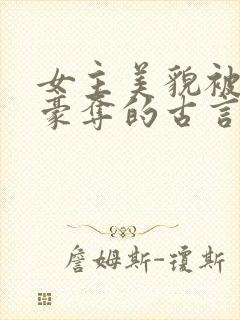 女主美貌被
豪夺的古言
詹姆斯-琼斯